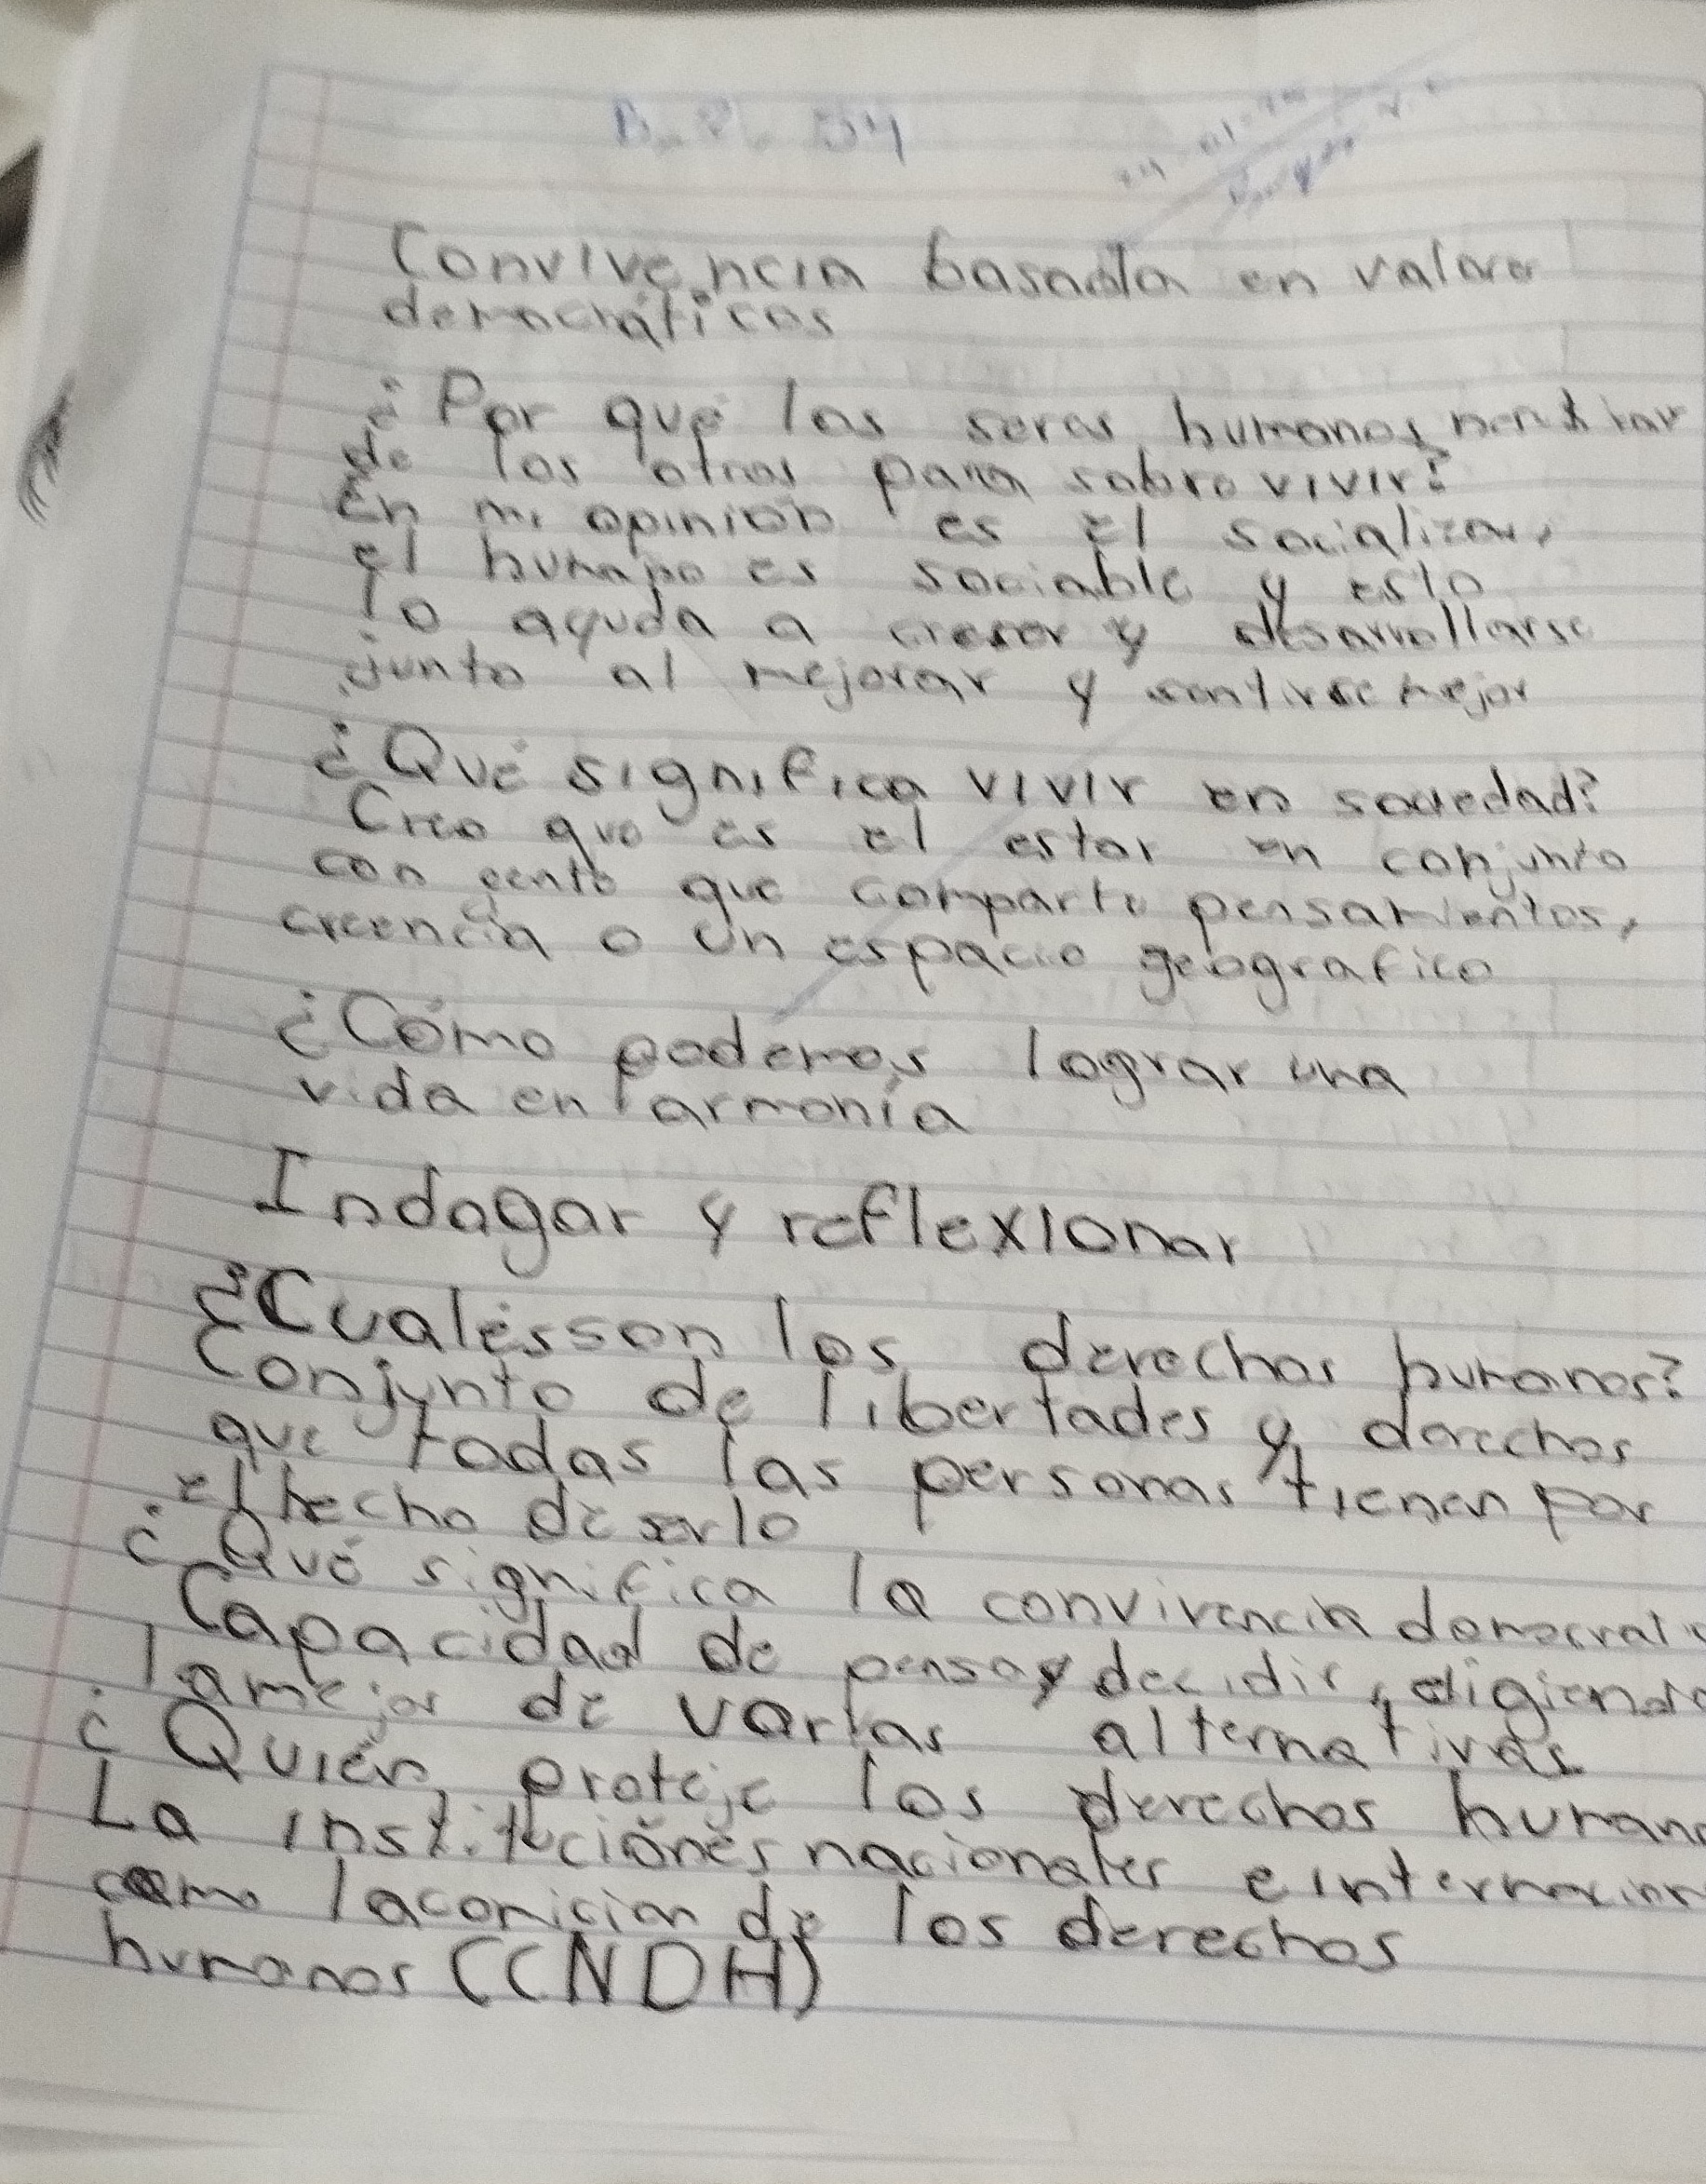 Convivencia basada en valores
democráticos
¿Por qué los seres humanos necesitar
de los otros para sobrevivir?
En mi opinión es el socializar,
el humano es sociable y esto
lo ayuda a creser y desarrollarse
junto al mejorar y sentirse mejor
¿Qué significa vivir en sociedad?
Creo que es el estar en conjunto
con gente que comparte pensamientos,
creencia o un espacio geografico
¿Cómo podemos lograr una
vida en armonía
Indagar y reflexionar
¿Cuáles son los derechos humanos?
Conjunto de libertades y derechos
que todas las personas tienen por
el hecho de serlo
¿Qué significa la convivencia
Capacidad de pensar y decidir, eligiendo
la mejor de varias alternativas
¿Quién proteje los derechos humano
La instituciónes nacionales e internacion
como la comicion de los derechos
humanos (CNDH)